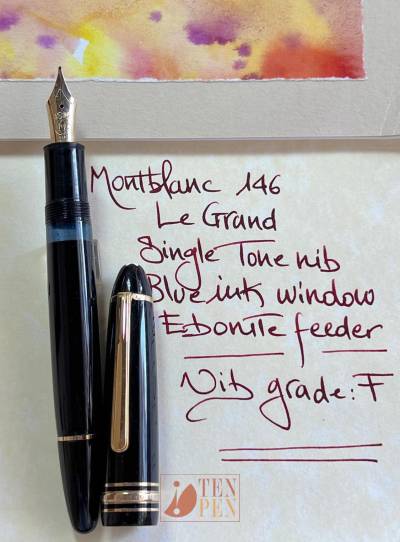 Montblanc 146
Le Grand
Single Tone nib
Blue ink window
Ebonite feeder
Nib grade: F
TEN
PEN